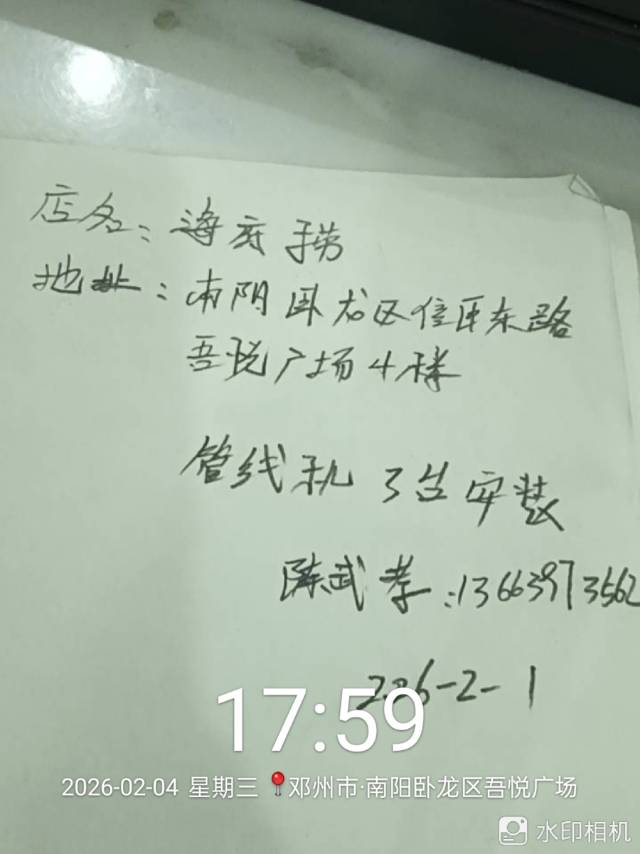 店名：海底捞
地址：南阳卧龙区信臣东路
吾悦广场4楼
管线机 3台安装
陈武孝：13663973562
226-2-1
17:59
2026-02-04 星期三 邓州市·南阳卧龙区吾悦广场
水印相机